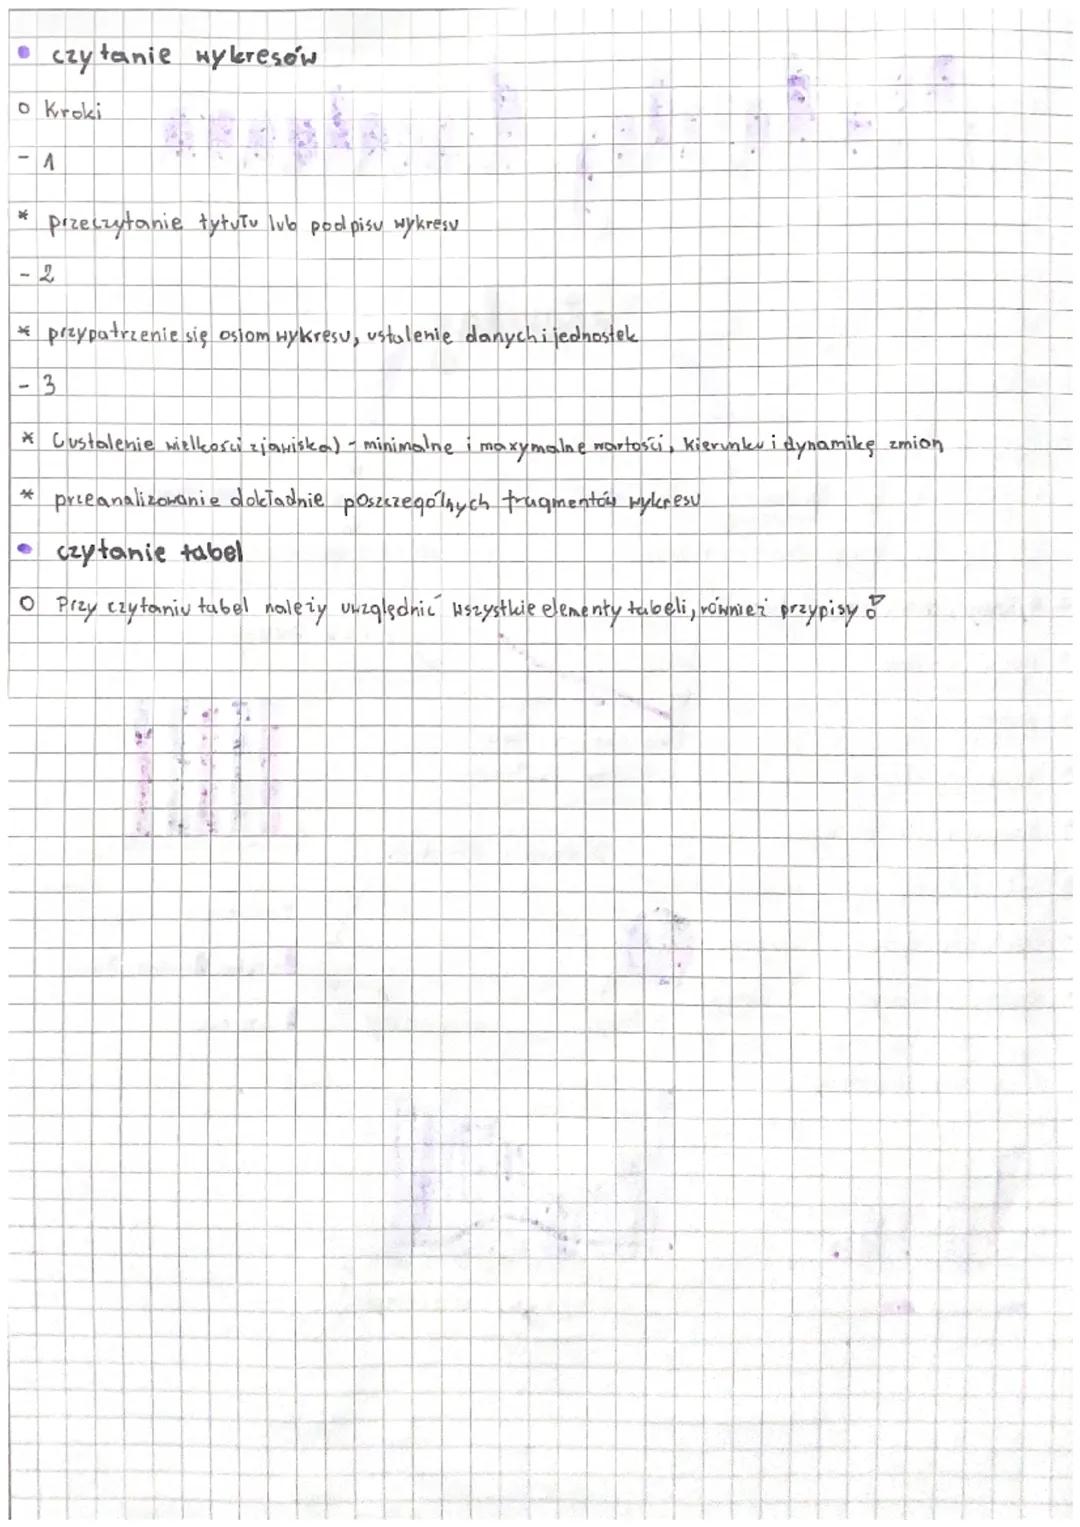 • czytanie wykresów
○ Kroki
- 1
* przeczytanie tytułu lub podpisu wykresu
- 2
* przypatrzenie się osiom wykresu, ustalenie danych i jednostek
- 3
* (ustalenie wielkości zjawiska) - minimalne i maxymalne wartości, kierunku i dynamikę zmian
* przeanalizowanie dokładnie poszczególnych fragmentów wykresu
• czytanie tabel
○ Przy czytaniu tabel należy uwzględnić wszystkie elementy tabeli, również przypisy !